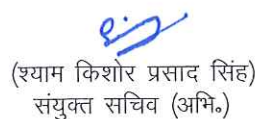 (श्याम किशोर प्रसाद सिंह)
संयुक्त सचिव (अभि॰)